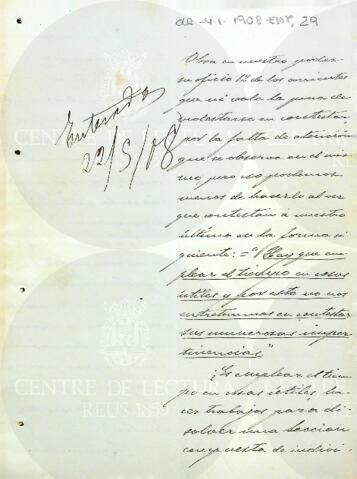 de -4-1- 1908 ENT, 29
Enterados
22/5/08
Obra en nuestro poder
su oficio 12 de los corrientes
que ni vale la pena de
molestarse en contestar
por la falta de atención
que se observa en el mis
mo pero no podemos
menos de hacerlo al ver
que contestan á nuestro
último en la forma si
guiente: = "Hay que em
plear el tiempo en cosas
útiles y por esto no nos
entretenemos en contestar
sus numerosas imper
tinencias."
¡Es emplear el tiem
po en cosas útiles ha
cer trabajos para di
solver una Sección
compuesta de indivi-
CENTRE DE LECTURA
CENTRE DE LECTURA
REUS 1859